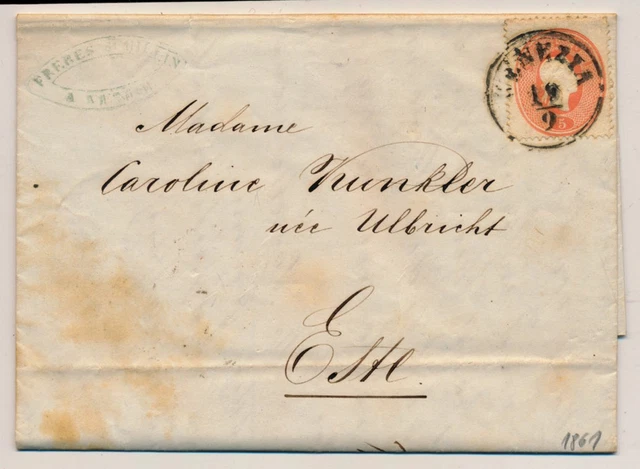 FRERES
A
VENEZIA
19
9
5
Madame
Caroline Kunkler
née Ulbricht
Este.
1861